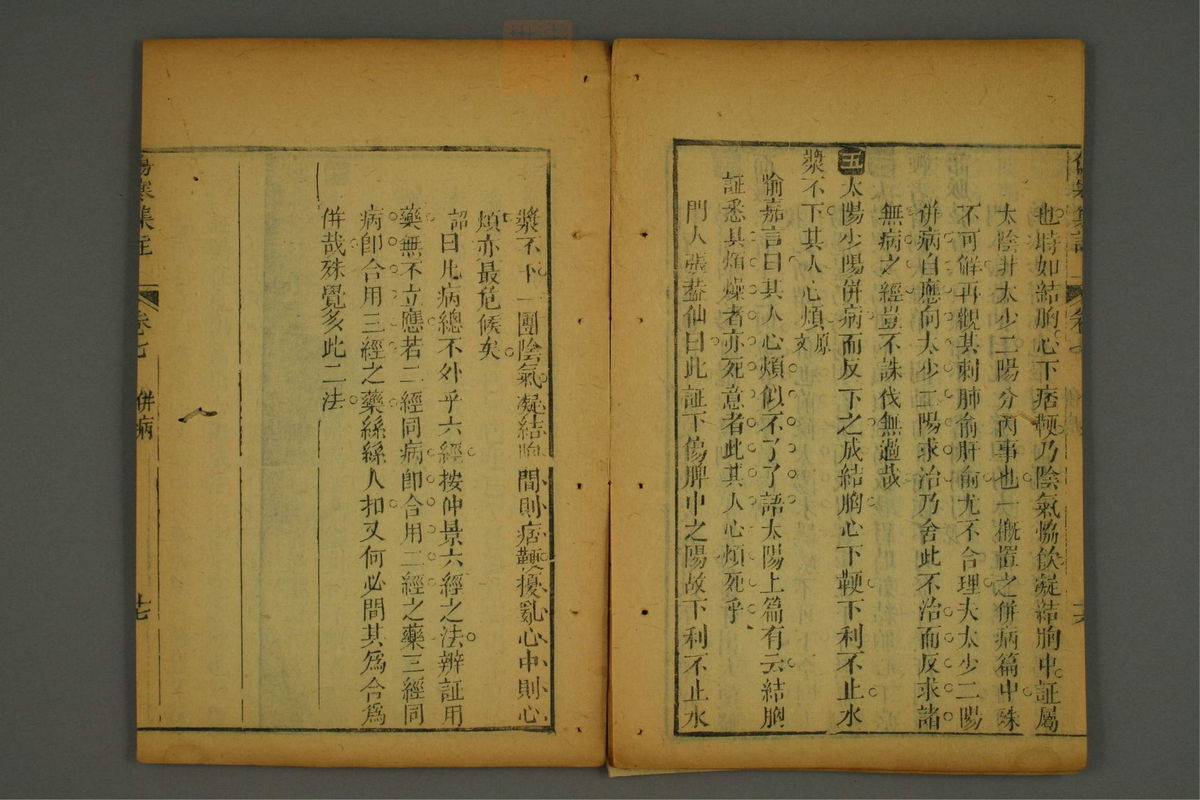 也時如結胸心下痞鞕乃陰氣恊飲凝結胸中証屬
太陰並太少二陽分內事也一槪置之併病篇中殊
不可解再觀其刺肺俞肝俞尤不合理夫太少二陽
併病自應向太少二陽求治乃舍此不治而反求諸
無病之經豈不誅伐無過哉
五太陽少陽併病而反下之成結胸心下鞕下利不止水
漿不下其人心煩原文
喻嘉言曰其人心煩似不了了語太陽上篇有云結胸
証悉具煩燥者亦死意者此其人心煩死乎
門人張蓋仙曰此証下傷脾中之陽故下利不止水
傷寒集註
卷七
併病
十七
漿不下一團陰氣凝結胸間則痞鞕擾亂心中則心
煩亦最危候矣
詔曰凡病總不外乎六經按仲景六經之法辨証用
藥無不立應若二經同病卽合用二經之藥三經同
病卽合用三經之藥絲絲入扣又何必問其爲合爲
併哉殊覺多此二法